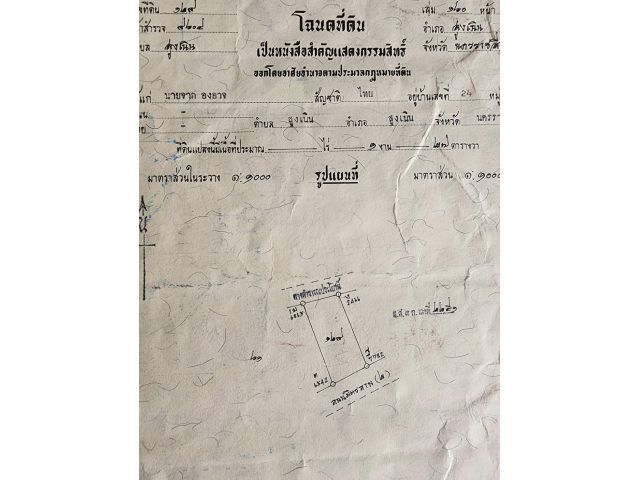 โฉนดที่ดิน
เป็นหนังสือสำคัญแสดงกรรมสิทธิ์
ออกโดยอาศัยอำนาจตามประมวลกฎหมายที่ดิน
ที่ดิน ๑๒๙ เล่ม ๑๒๐ หน้า
สำรวจ ๙๒๐๙ อำเภอ สูงเนิน
สูงเนิน จังหวัด
แก่ นายจาก องอาจ สัญชาติ ไทย อยู่บ้านเลขที่ 24
ตำบล สูงเนิน อำเภอ สูงเนิน จังหวัด นครรา
ที่ดินแปลงนี้มีเนื้อที่ประมาณ ไร่ ๑ งาน ๒๗ ตารางวา
มาตราส่วนในระวาง ๑:๑๐๐๐ รูปแผนที่ มาตราส่วน ๑:๑๐๐๐
ทางสาธารณประโยชน์
๑๒๙
ถนนมิตรภาพ (๒)